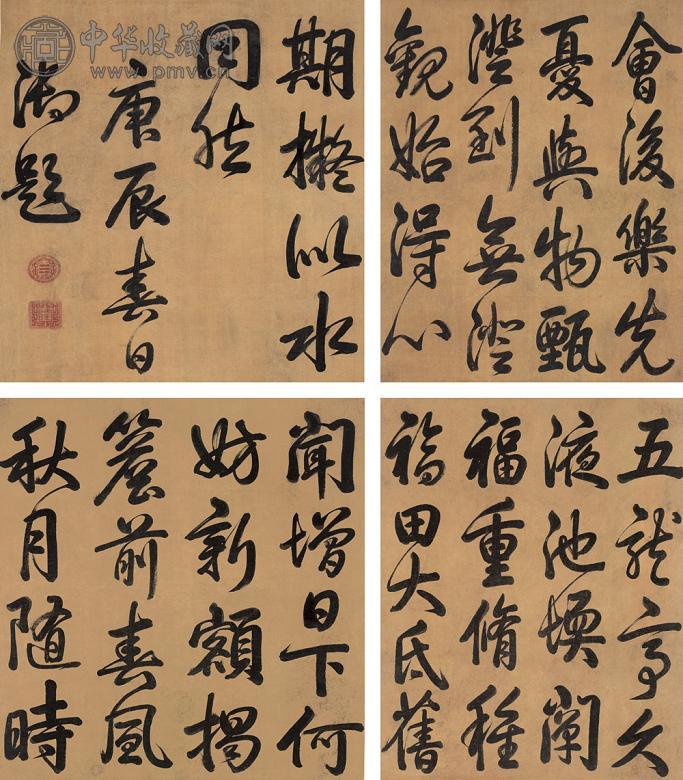 五龍亭久
液池壖闡
福重脩種
福田大氐舊
聞增日下何
妨新額揭
簷前春風
秋月隨時
會後樂先
憂與物甄
澄到無澄
觀始得心
期擬似水
同然
庚辰春日
御題
中华收藏网
www.pmv.cn